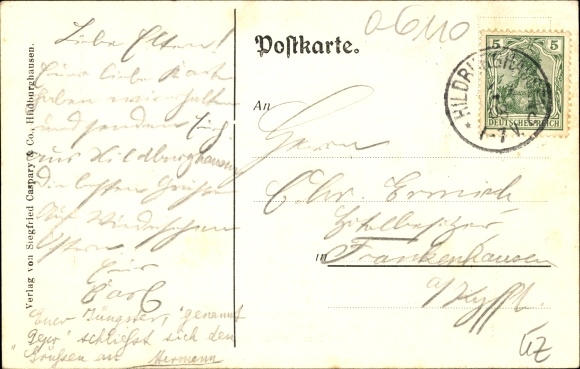 06110
Liebe Eltern!
Eure liebe Karte
haben wir erhalten
und senden Euch
aus Hildburghausen
die besten Grüße
Auf Wiedersehen
Ostern!
Euer
Carl
Euer Jüngster, genannt
schließt sich den
Grüßen an Hermann
Verlag von Siegfried Caspary & Co., Hildburghausen.
Postkarte.
An
Herrn
Chr.
Hotelbesitzer
in Frankenhausen
a/Kyffh.
5 5
DEUTSCHES REICH
HILDBURGHAUSEN